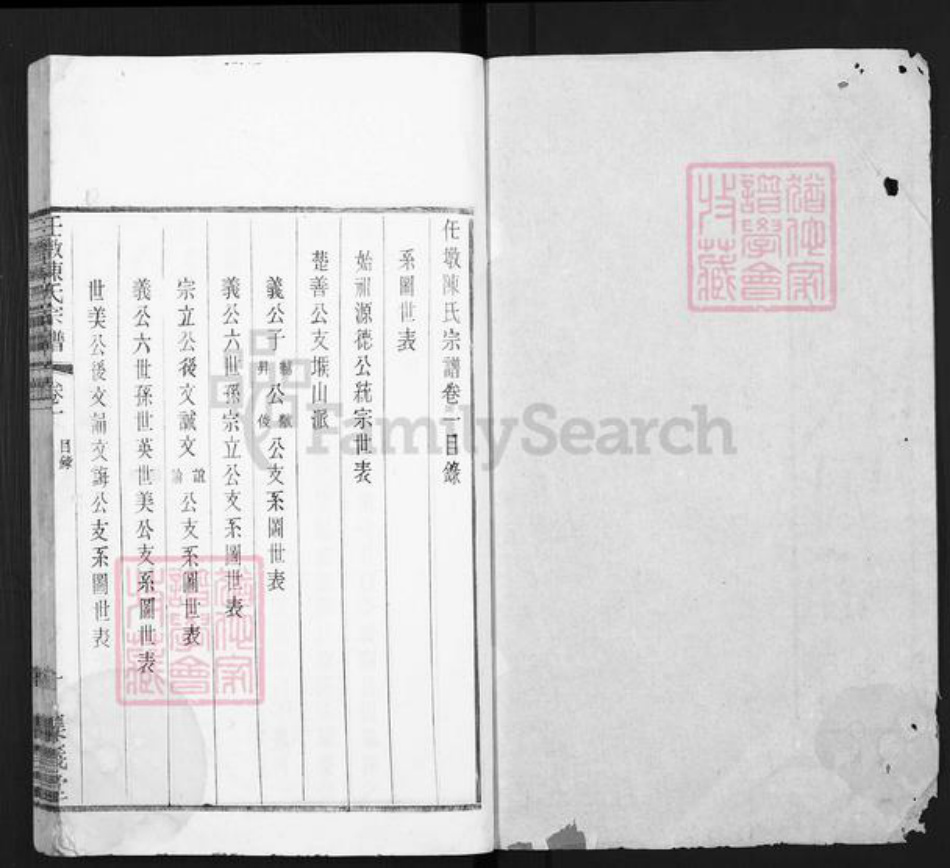 任墩陳氏宗譜卷一目錄
系圖世表
始祖源德公統宗世表
楚善公支堠山派
義公子 昇 公 俊 公支系圖世表
義公六世孫宗立公支系圖世表
宗立公後文誠文 公支系圖世表
義公六世孫世英世美公支系圖世表
世美公後文誦文誨公支系圖世表
任墩陳氏宗譜 卷一 目錄 一
猶他家譜學會收藏
猶他家譜學會收藏
FamilySearch